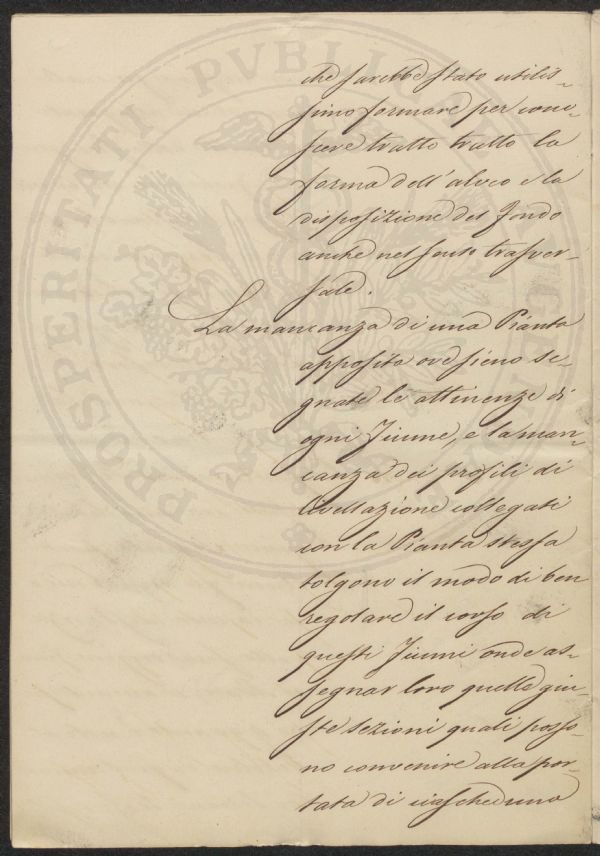 PROSPERITATI PVBLICAE
che sarebbe stato utilis-
simo formare per cono-
scere tratto tratto la
forma dell'alveo e la
disposizione del fondo
anche nel senso trasver-
sale.
La mancanza di una Pianta
apposita ove sieno se-
gnate le attinenze di
ogni Fiume, e la man-
canza dei profili di
livellazione collegati
con la Pianta stessa
tolgono il modo di ben
regolare il corso di
questi Fiumi onde as-
segnar loro quelle giu-
ste sezioni quali posso-
no convenire alla por-
tata di ciascheduno